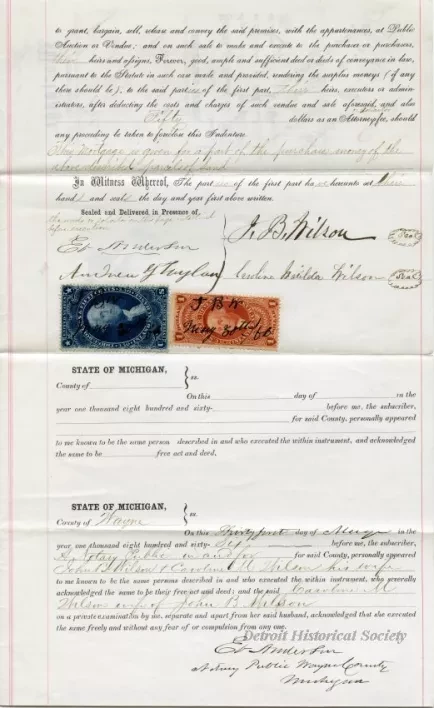 to grant, bargain, sell, release and convey the said premises, with the appurtenances, at Public
Auction or Vendue; and on such sale to make and execute to the purchaser or purchasers,
their heirs and assigns, Forever, good, ample and sufficient deed or deeds of conveyance in law,
pursuant to the Statute in such case made and provided, rendering the surplus moneys (if any
there should be), to the said parties of the first part, their heirs, executors or admin-
istrators, after deducting the costs and charges of such vendue and sale aforesaid, and also
Fifty dollars as an Attorney fee, should
any proceeding be taken to foreclose this Indenture.
This Mortgage is given for a part of the purchase money of the
above described parcel of land
In Witness Whereof, The parties of the first part have hereunto set their
hands and seals the day and year first above written.
Sealed and Delivered in Presence of
before execution
J. B. Wilson Seal
Ed Anderson
Andrew Caroline Wilson Seal
J B W
May
STATE OF MICHIGAN, } ss.
County of
On this day of in the
year one thousand eight hundred and sixty- before me, the subscriber,
for said County, personally appeared
to me known to be the same person described in and who executed the within instrument, and acknowledged
the same to be free act and deed.
STATE OF MICHIGAN, } ss.
County of Wayne
On this Thirty first day of May in the
year one thousand eight hundred and sixty- before me, the subscriber,
A Notary Public in and for for said County, personally appeared
John B Wilson & Caroline M Wilson his wife
to me known to be the same persons described in and who executed the within instrument, who generally
acknowledged the same to be their free act and deed; and the said Caroline M
Wilson wife of John B Wilson
on a private examination by me, separate and apart from her said husband, acknowledged that she executed
the same freely and without any fear of or compulsion from any one.
Detroit Historical Society
Ed Anderson
Notary Public Wayne County
Michigan